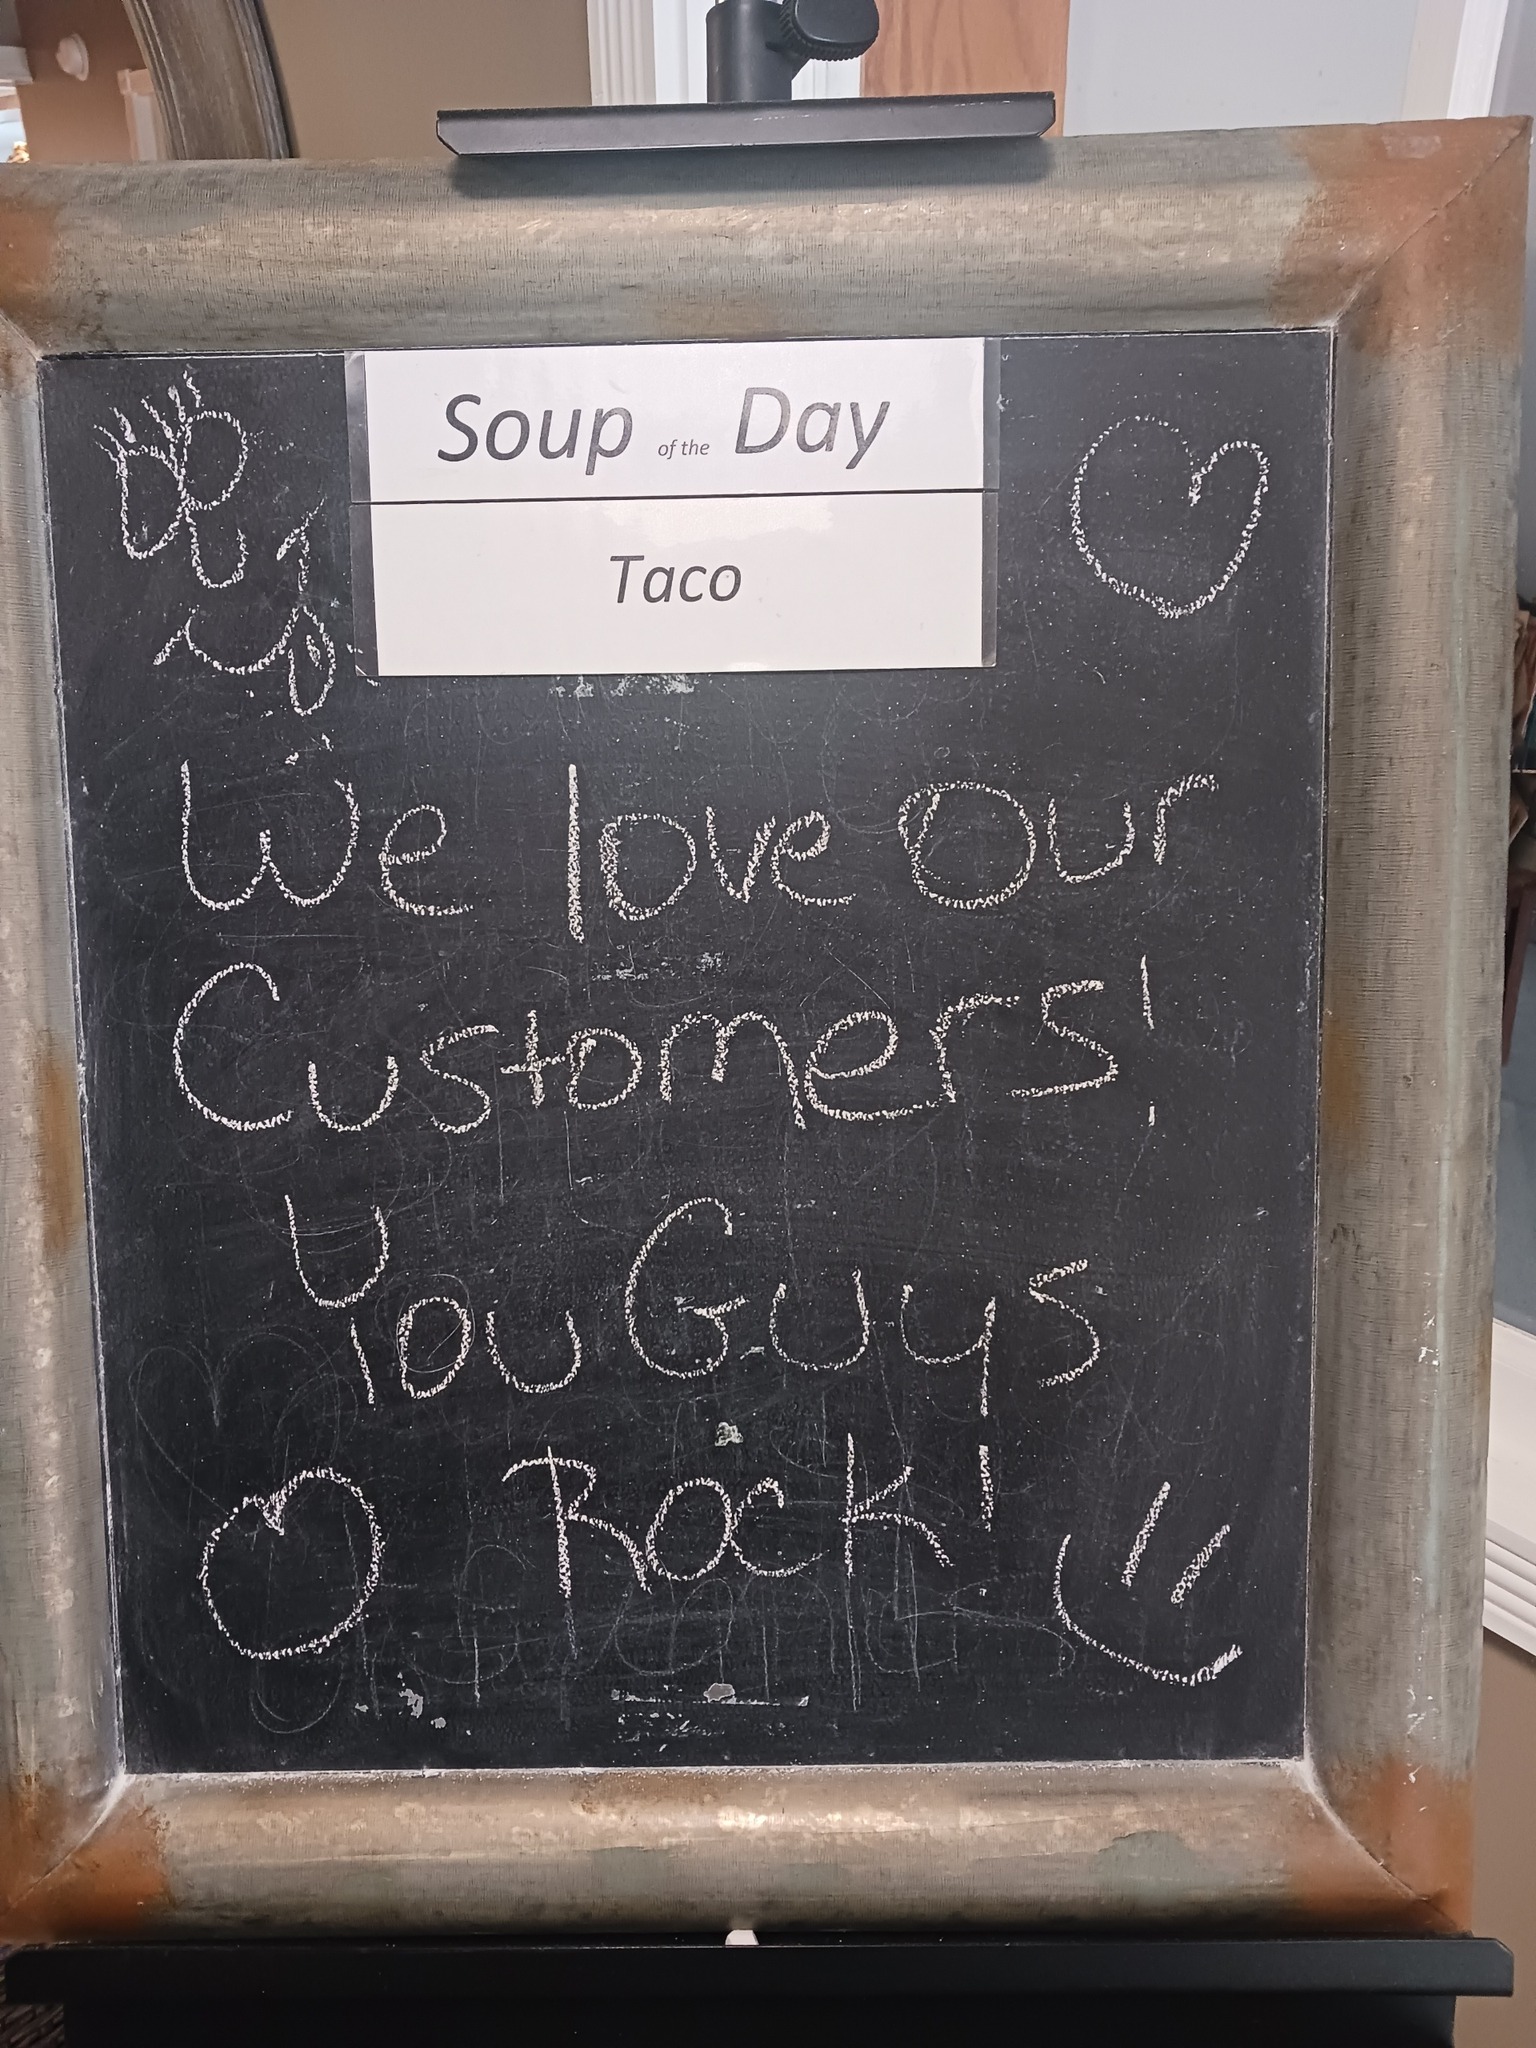 Soup of the Day
Taco
We love Our
Customers!
You Guys
Rock!